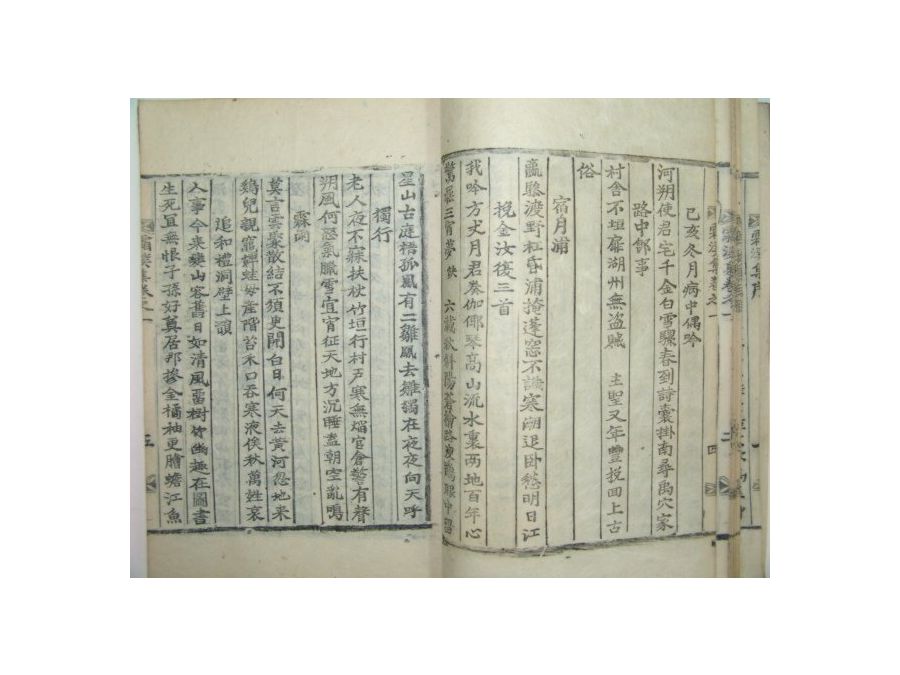 己亥冬月病中偶吟
河朔使君宅千金白雪騾春到詩囊掛南尋禹穴家
路中卽事
村舍不垣扉湖州無盜賊 主聖又年豐挽回上古
俗
宿月浦
羸驂渡野杠昏浦掩蓬窓不識寒潮退臥愁明日江
挽金汝復三首
我吟方丈月君奏伽倻琴高山流水裏兩地百年心
三宵夢 六載秋 眼中
星山古庭梧孤鳳有二雛鳳去雛獨在夜夜向天呼
獨行
老人夜不寐扶杖竹垣行村戶寒無烟官倉警有聲
朔風何怒氣臘雪宜宵征天地方沉睡盖朝空亂鳴
霖雨
莫言雲聚散結不須更開白日何天去黃河忽地來
鷄兒親竈蟬蛙母産階苔禾口吞寒液俟秋萬姓哀
追和禮洞壁上韻
人事今來變山容舊日如清風留樹竹幽趣在圖書
生死宜無恨子孫好奠居那擦金橘柚更膾蟾江魚
四
五